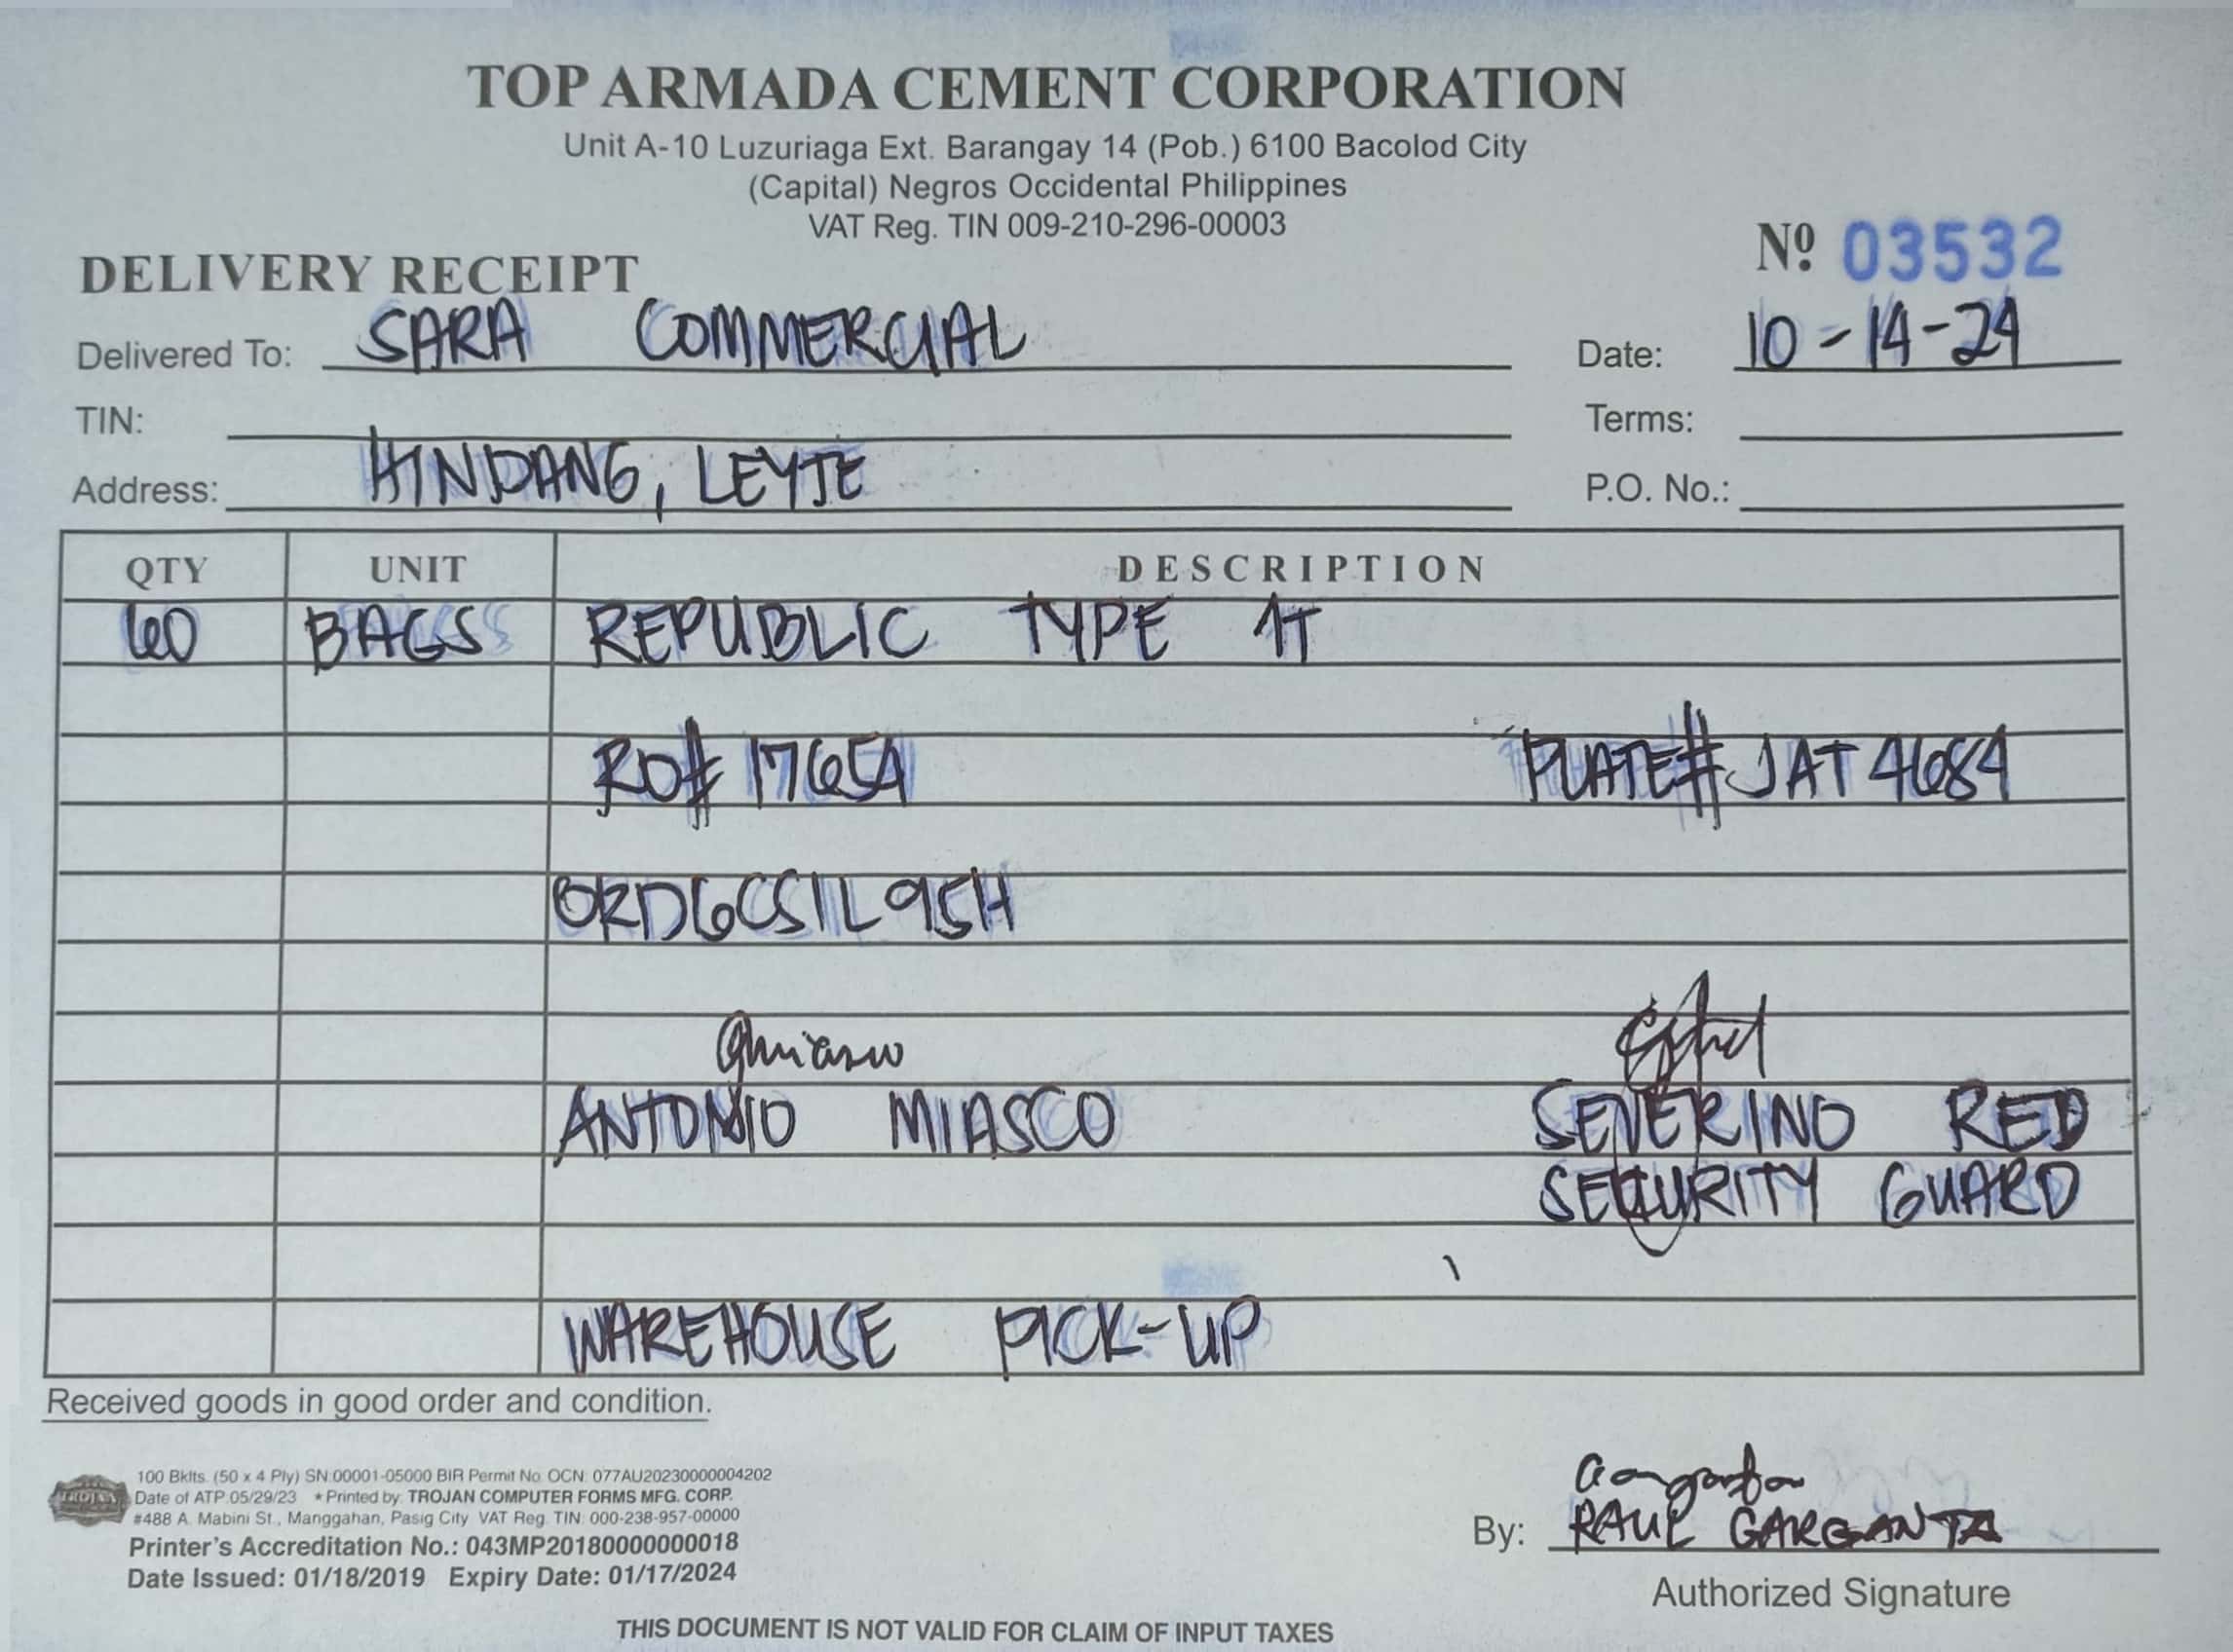 TOP ARMADA CEMENT CORPORATION
Unit A-10 Luzuriaga Ext. Barangay 14 (Pob.) 6100 Bacolod City
(Capital) Negros Occidental Philippines
VAT Reg. TIN 009-210-296-00003
Nº 03532
DELIVERY RECEIPT
Delivered To: SARA COMMERCIAL Date: 10-14-24
TIN: Terms:
Address: HINDANG, LEYTE P.O. No.:
QTY UNIT DESCRIPTION
60 BAGS REPUBLIC TYPE 1T
RO# 17654 PLATE# JAT 4684
ORD6CS1L95H
ANTONIO MIASCO SEVERINO RED
SECURITY GUARD
WAREHOUSE PICK-UP
Received goods in good order and condition.
TROJAN
100 Bklts. (50 x 4 Ply) SN:00001-05000 BIR Permit No. OCN: 077AU20230000004202
Date of ATP:05/29/23 * Printed by: TROJAN COMPUTER FORMS MFG. CORP.
#488 A. Mabini St., Manggahan, Pasig City VAT Reg. TIN: 000-238-957-00000
Printer's Accreditation No.: 043MP20180000000018
Date Issued: 01/18/2019 Expiry Date: 01/17/2024
By: RAUL GARGANTA
Authorized Signature
THIS DOCUMENT IS NOT VALID FOR CLAIM OF INPUT TAXES